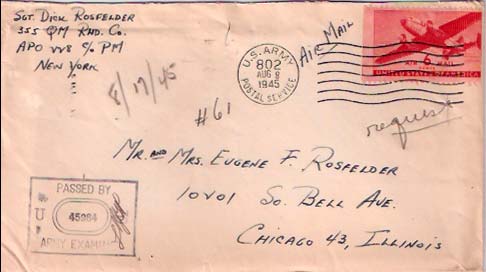 Sgt. Dick Rosfelder
355 QM Rnd. Co.
APO 228 % PM
New York
Air Mail
U.S. ARMY
802
AUG 9
1945
POSTAL SERVICE
AIR 6 MAIL
CENTS
UNITED STATES OF AMERICA
8/17/45
#61
request
Mr. and Mrs. Eugene F. Rosfelder
10201 So. Bell Ave.
Chicago 43, Illinois
PASSED BY
U
45984
ARMY EXAMINER